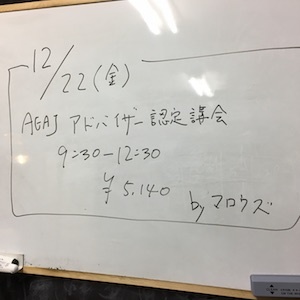 12/22(金)
AEAJ アドバイザー認定講会
9:30-12:30
¥5.140
by マロウズ